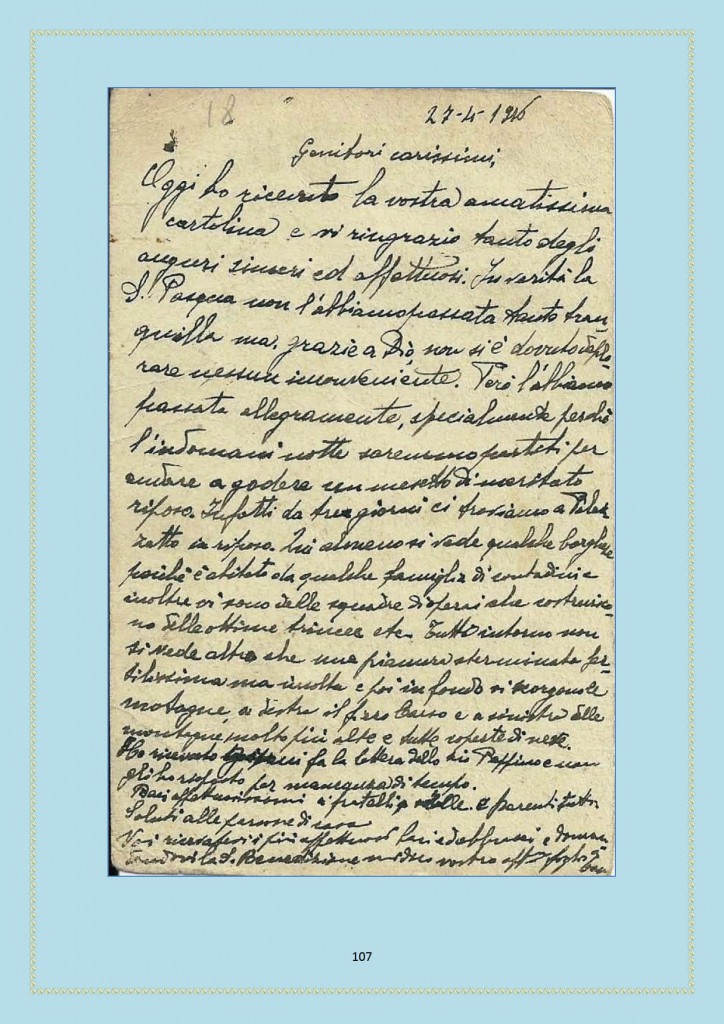 18
27-4-1916
Genitori carissimi,
Oggi ho ricevuto la vostra amatissima
cartolina e vi ringrazio tanto degli
auguri sinceri ed affettuosi. In verità la
S. Pasqua non l'abbiamo passata tanto tran-
quilla ma, grazie a Dio, non si è dovuto deplo-
rare nessun inconveniente. Però l'abbiamo
passata allegramente, specialmente perché
l'indomani notte saremmo partiti per
andare a godere un mesetto di meritato
riposo. Infatti da tre giorni ci troviamo a
in riposo. Qui almeno si vede qualche borghese
poiché è abitato da qualche famiglia di contadini e
inoltre vi sono delle squadre di operai che costruisco-
no delle ottime trincee etc. Tutto intorno non
si vede altro che una pianura sterminata fer-
tilissima ma incolta e poi in fondo si scorgono le
motagne, a destra il fiero Carso e a sinistra delle
montagne molto più alte e tutte coperte di neve.
Ho ricevuto fa la lettera dello zio Peppino e non
gli ho risposto per mancanza di tempo.
Baci affettuosissimi ai fratelli, sorelle e parenti tutti.
Saluti alle persone di casa
Voi ricevetevi i più affettuosi baci ed abbracci e doman-
dandovi la S. Benedizione mi dico vostro aff.mo figlio
107